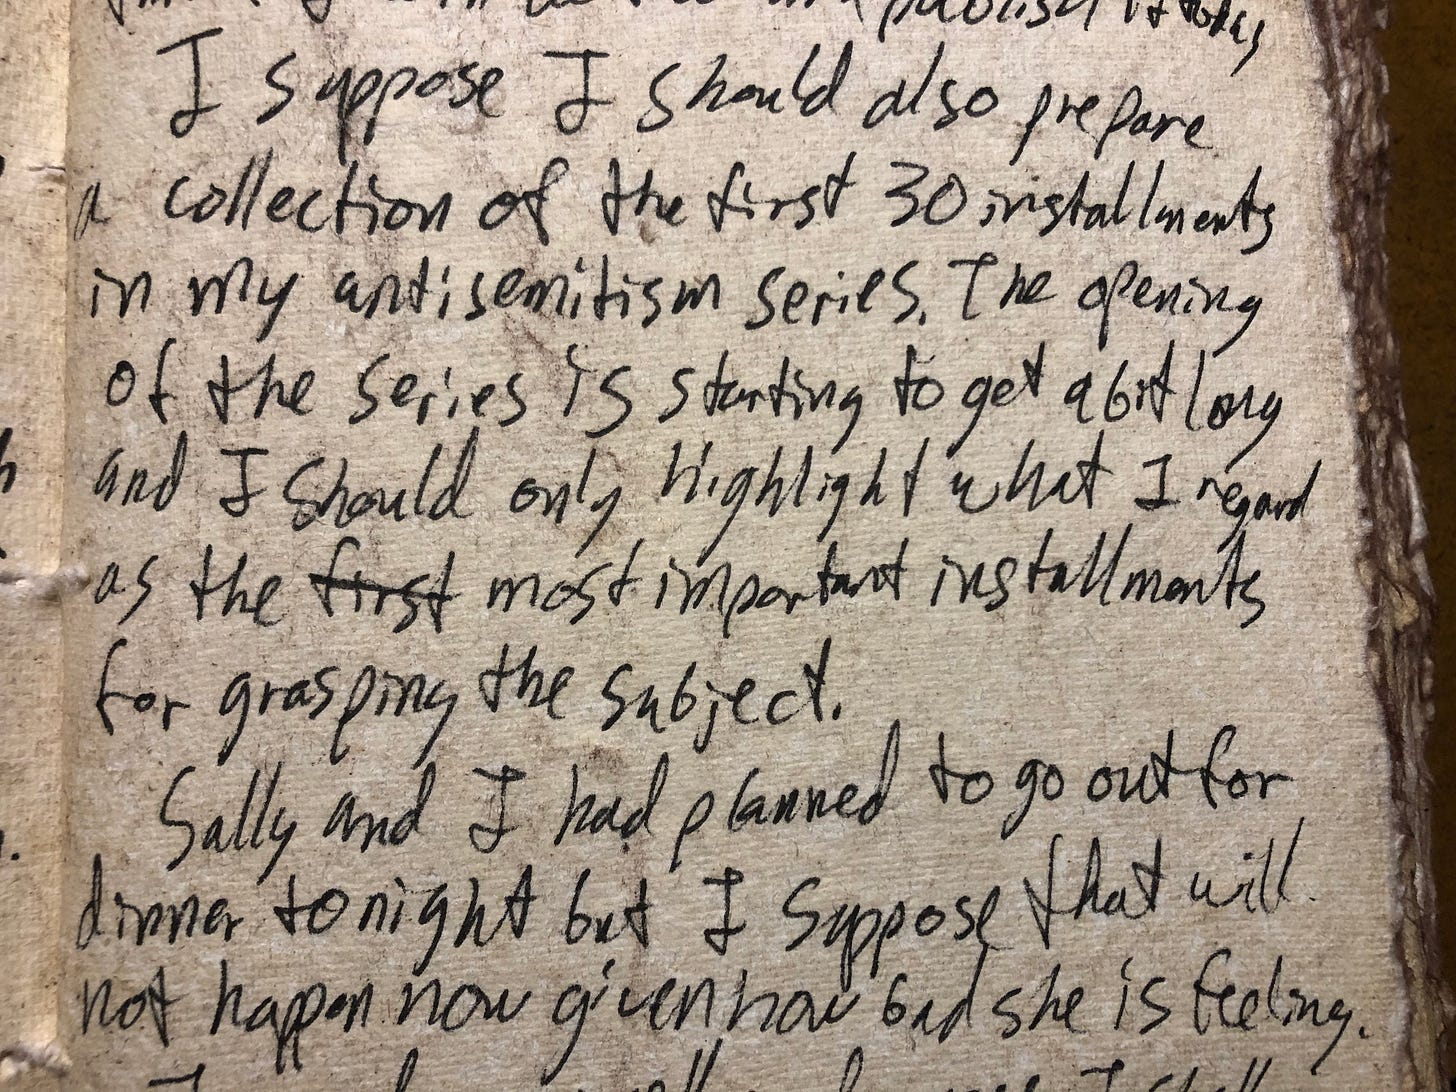 publish it today,
I suppose I should also prepare
a collection of the first 30 installments
in my antisemitism series. The opening
of the series is starting to get a bit long
and I should only highlight what I regard
as the first most important installments
for grasping the subject.
Sally and I had planned to go out for
dinner tonight but I suppose that will
not happen now given how bad she is feeling.